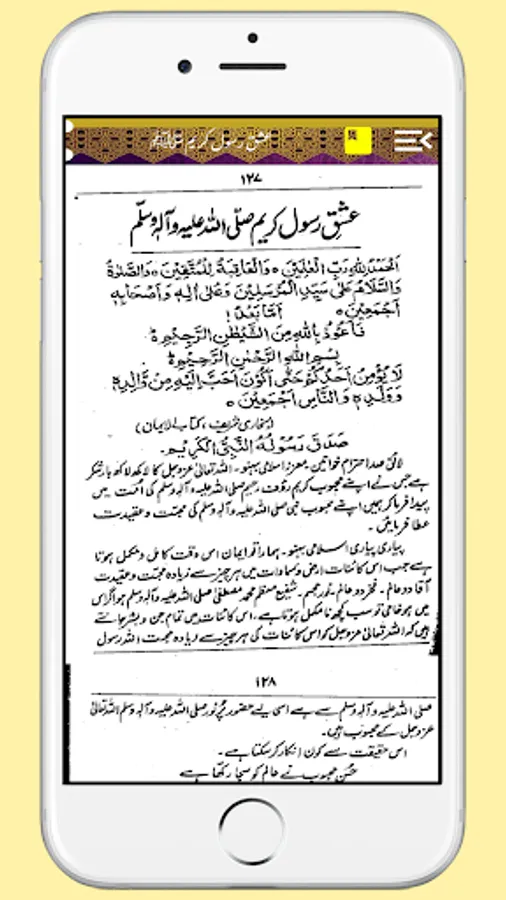 عشق رسول کریم ﷺ
۱۲۷
عشق رسول کریم صلی اللہ علیہ وآلہٖ وسلّم
اَلْحَمْدُ لِلّٰہِ رَبِّ الْعٰلَمِیْنَ ہ وَالْعَاقِبَۃُ لِلْمُتَّقِیْنَ ہ وَالصَّلٰوۃُ
وَالسَّلَامُ عَلٰی سَیِّدِ الْمُرْسَلِیْنَ وَعَلٰی اٰلِہٖ وَاَصْحَابِہٖ
اَجْمَعِیْنَ ہ اَمَّا بَعْدُ !
فَاَعُوْذُ بِاللّٰہِ مِنَ الشَّیْطٰنِ الرَّجِیْمِ ہ
بِسْمِ اللّٰہِ الرَّحْمٰنِ الرَّحِیْمِ ہ
لَا یُؤْمِنُ اَحَدُکُمْ حَتّٰی اَکُوْنَ اَحَبَّ اِلَیْہِ مِنْ وَّالِدِہٖ
وَوَلَدِہٖ وَالنَّاسِ اَجْمَعِیْنَ ہ
(بخاری شریف، کتاب الایمان)
صَدَقَ رَسُوْلُہُ النَّبِیُّ الْکَرِیْمُ۔
لائق صد احترام خواتین۔ معزز اسلامی بہنو۔ اللہ تعالیٰ عزوجل کا لاکھ لاکھ بار شکر
ہے جس نے اپنے محبوب کریم رؤف رحیم صلی اللہ علیہ وآلہٖ وسلم کی امت میں
پیدا فرما کر ہمیں اپنے محبوب نبی صلی اللہ علیہ وآلہٖ وسلم کی محبت و عقیدت
عطا فرمائی۔
پیاری پیاری اسلامی بہنو۔ ہمارا تو ایمان اس وقت کامل و مکمل ہوتا
ہے جب اس کائنات ارض و سماوات میں ہر چیز سے زیادہ محبت و عقیدت
آقا دو عالم۔ فخر دو عالم۔ نور مجسم۔ شفیع معظم محمد مصطفیٰ صلی اللہ علیہ وآلہٖ وسلم ہو اگر اس
میں ہو خامی تو سب کچھ نامکمل ہوتا ہے۔ اس کائنات میں تمام جن و بشر جانتے
ہیں کہ اللہ تعالیٰ عزوجل کو اس کائنات کی ہر چیز سے زیادہ محبت اللہ رسول
۱۲۸
صلی اللہ علیہ وآلہٖ وسلم سے ہے اسی لیے حضور پرنور صلی اللہ علیہ وآلہٖ وسلم اللہ تعالیٰ
عزوجل کے محبوب ہیں۔
اس حقیقت سے کون انکار کر سکتا ہے۔
حسن محبوب نے عالم کو سجا رکھا ہے